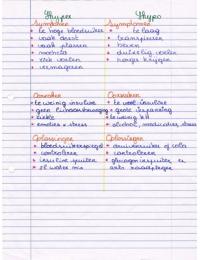 Hyper Hypo
Symptomen Symptomen
te hoge bloedsuiker te laag
vaak dorst transpireren
vaak plassen beven
moeheid duizelig voelen
ziek voelen honger krijgen
vermageren
Oorzaken Oorzaken
te weinig insuline te veel insuline
geen lichaamsbeweging grote inspanning
ziekte te weinig
emoties + stress alcohol, medicatie, stress
Oplossingen Oplossingen
bloedsuikerspiegel of cola
controleren controleren
insuline spuiten glucagon spuiten
arts raadplegen